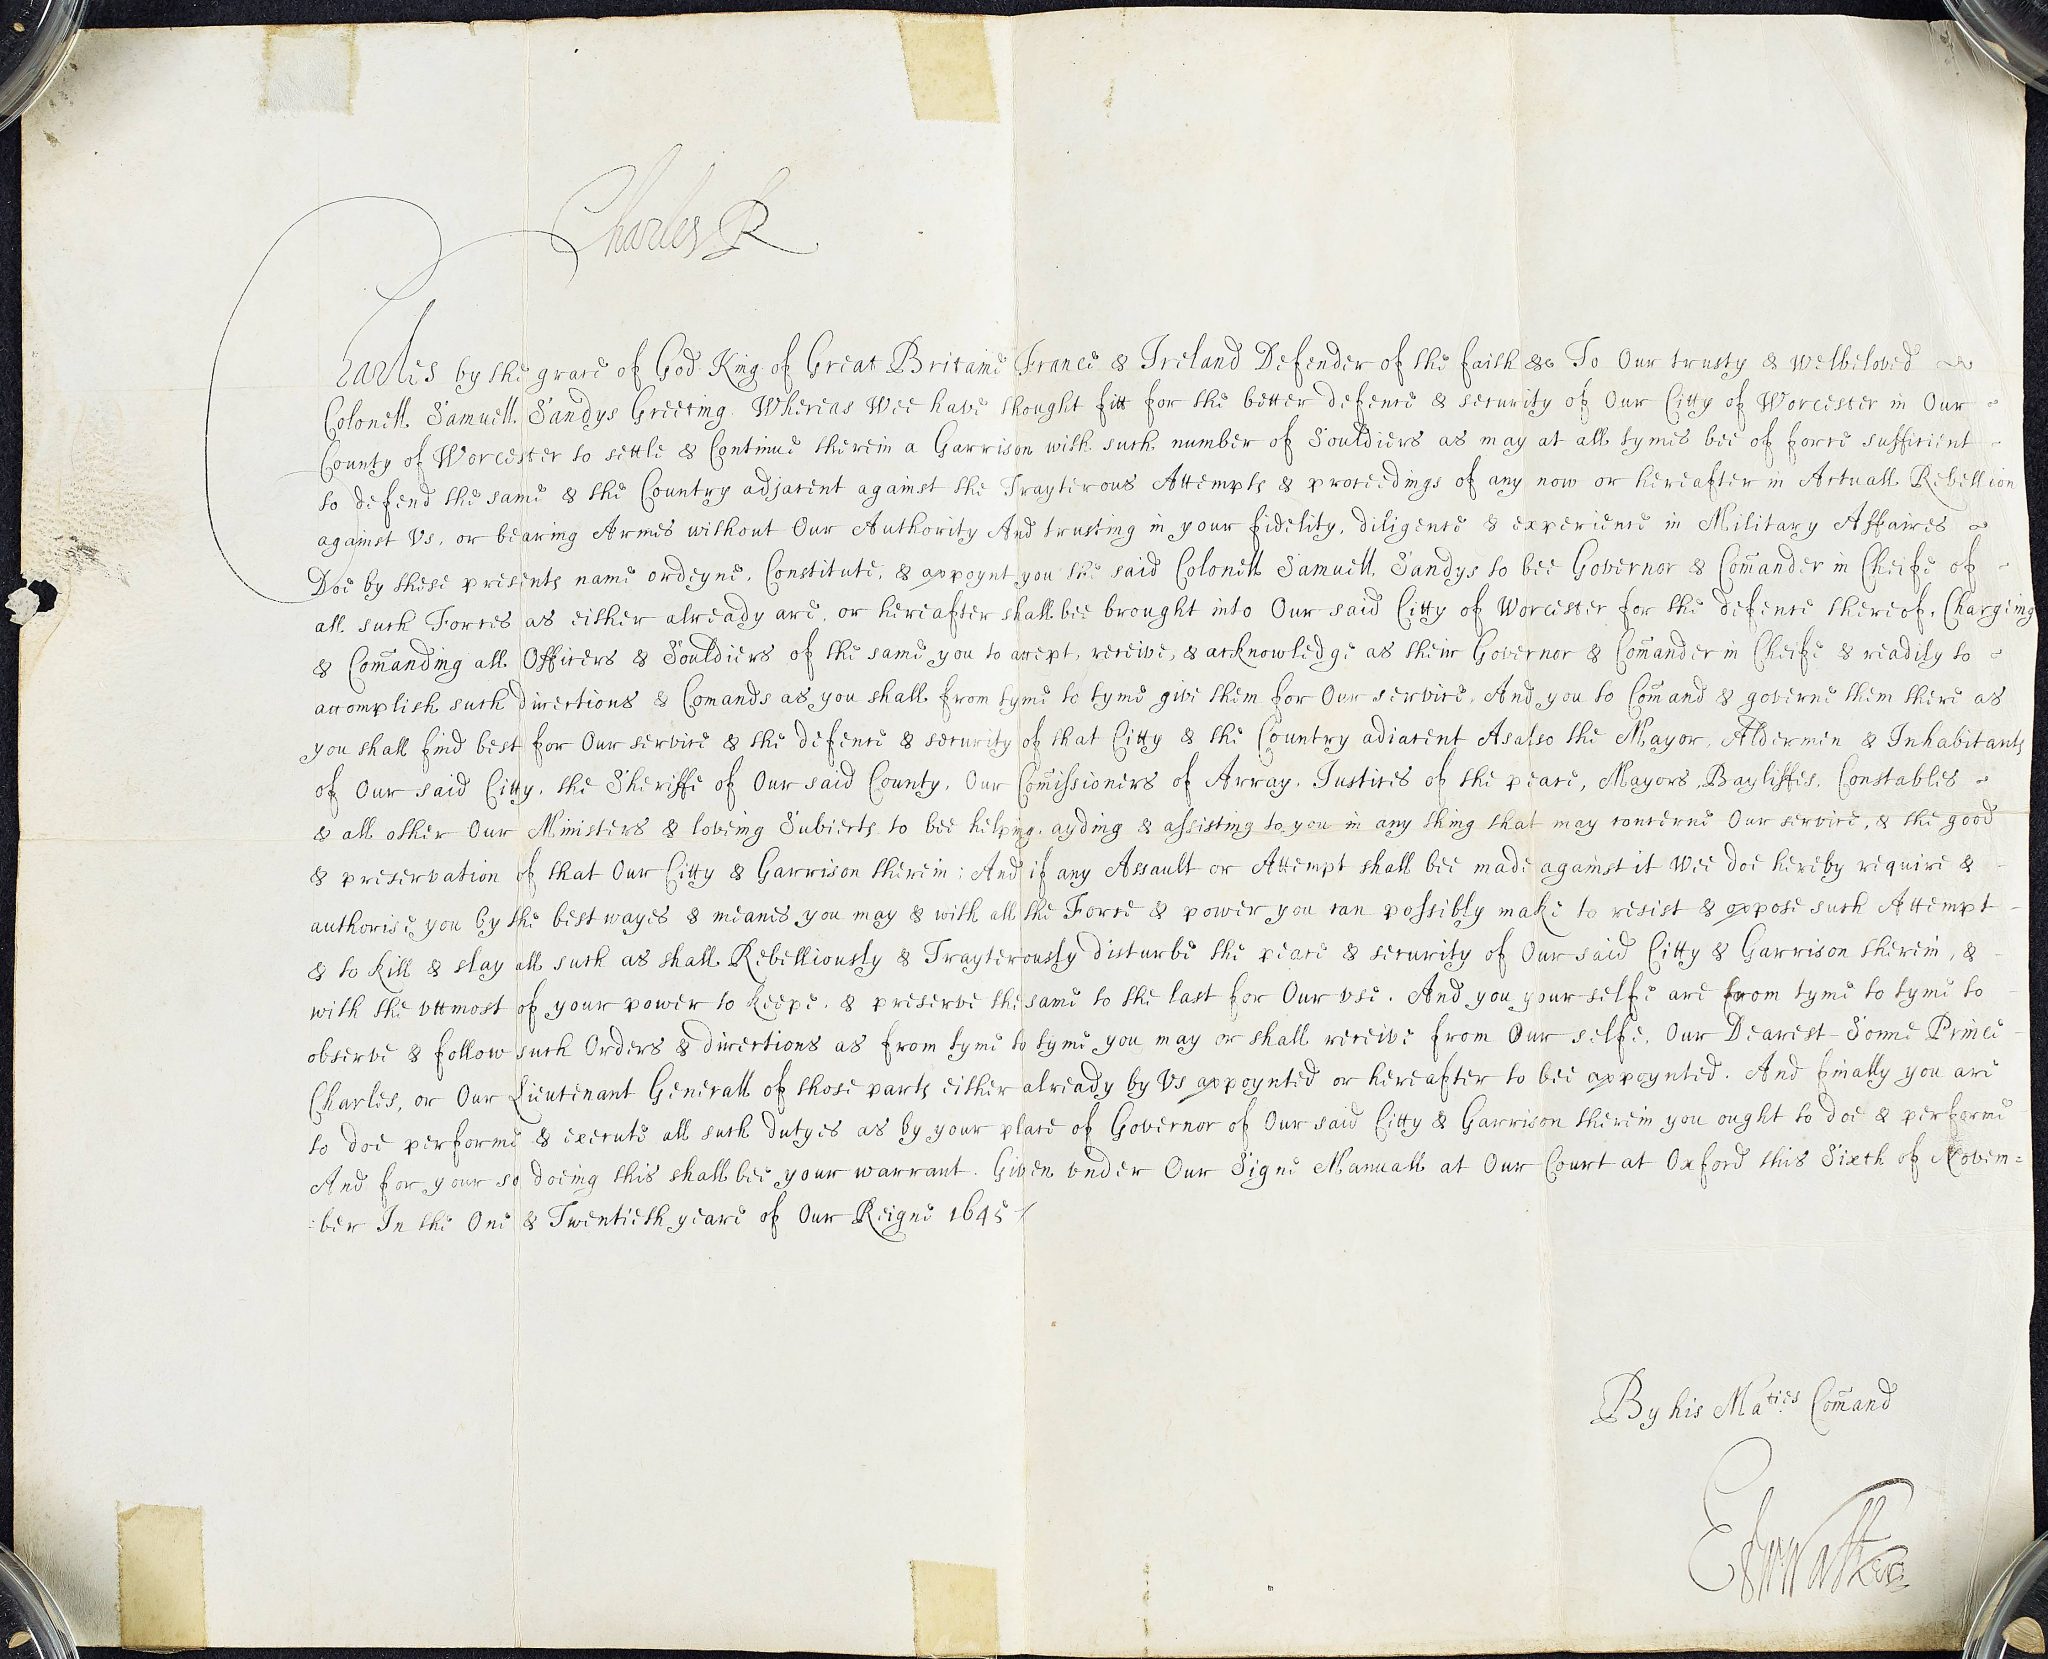 Charles R
Charles by the grace of God King of Great Britaine France & Ireland Defender of the faith &c To Our trusty & welbeloved
Colonell Samuell Sandys Greeting. Whereas Wee have thought fitt for the better defence & security of Our Citty of Worcester in Our
County of Worcester to settle & Continue therein a Garrison with such number of Souldiers as may at all tymes bee of force sufficient
to defend the same & the Country adjacent against the Trayterous Attempts & proceedings of any now or hereafter in Actuall Rebellion
against Vs, or bearing Armes without Our Authority And trusting in your fidelity, diligence & experience in Military Affaires
Doe by these presents name ordeyne, Constitute, & appoynt you the said Colonell Samuell Sandys to bee Governor & Com̄ander in Cheife of
all such Forces as either already are, or hereafter shall bee brought into Our said Citty of Worcester for the defence thereof, Chargeing
& Com̄anding all Officers & Souldiers of the same you to accept, receive, & acknowledge as their Governor & Com̄ander in Cheife & readily to
accomplish such directions & Comands as you shall from tyme to tyme give them for Our service, And you to Com̄and & governe them there as
you shall find best for Our service & the defence & security of that Citty & the Country adiacent As also the Mayor, Aldermen & Inhabitants
of Our said Citty, the Sheriffe of Our said County, Our Com̄issioners of Array, Justices of the peace, Mayors, Bayliffes, Constables
& all other Our Ministers & loveing Subiects to bee helping, ayding & assisting to you in any thing that may concerne Our service, & the good
& preservation of that Our Citty & Garrison therein: And if any Assault or Attempt shall bee made against it Wee doe hereby require &
authorise you by the best wayes & meanes you may & with all the Force & power you can possibly make to resist & oppose such Attempt
& to kill & slay all such as shall Rebelliously & Trayterously disturbe the peace & security of Our said Citty & Garrison therein, &
with the vttmost of your power to keepe, & preserve the same to the last for Our vse. And you your selfe are from tyme to tyme to
observe & follow such Orders & directions as from tyme to tyme you may or shall receive from Our selfe, Our Dearest Sonne Prince
Charles, or Our Lieutenant Generall of those parts either already by Vs appoynted or hereafter to bee appoynted. And finally you are
to doe performe & execute all such dutyes as by your place of Governor of Our said Citty & Garrison therein you ought to doe & performe
And for your so doeing this shall bee your warrant. Given vnder Our Signe Manuall at Our Court at Oxford this Sixth of Novem=
:ber In the One & Twentieth yeare of Our Reigne 1645
By his Ma^ties Com̄and
Edw Walker